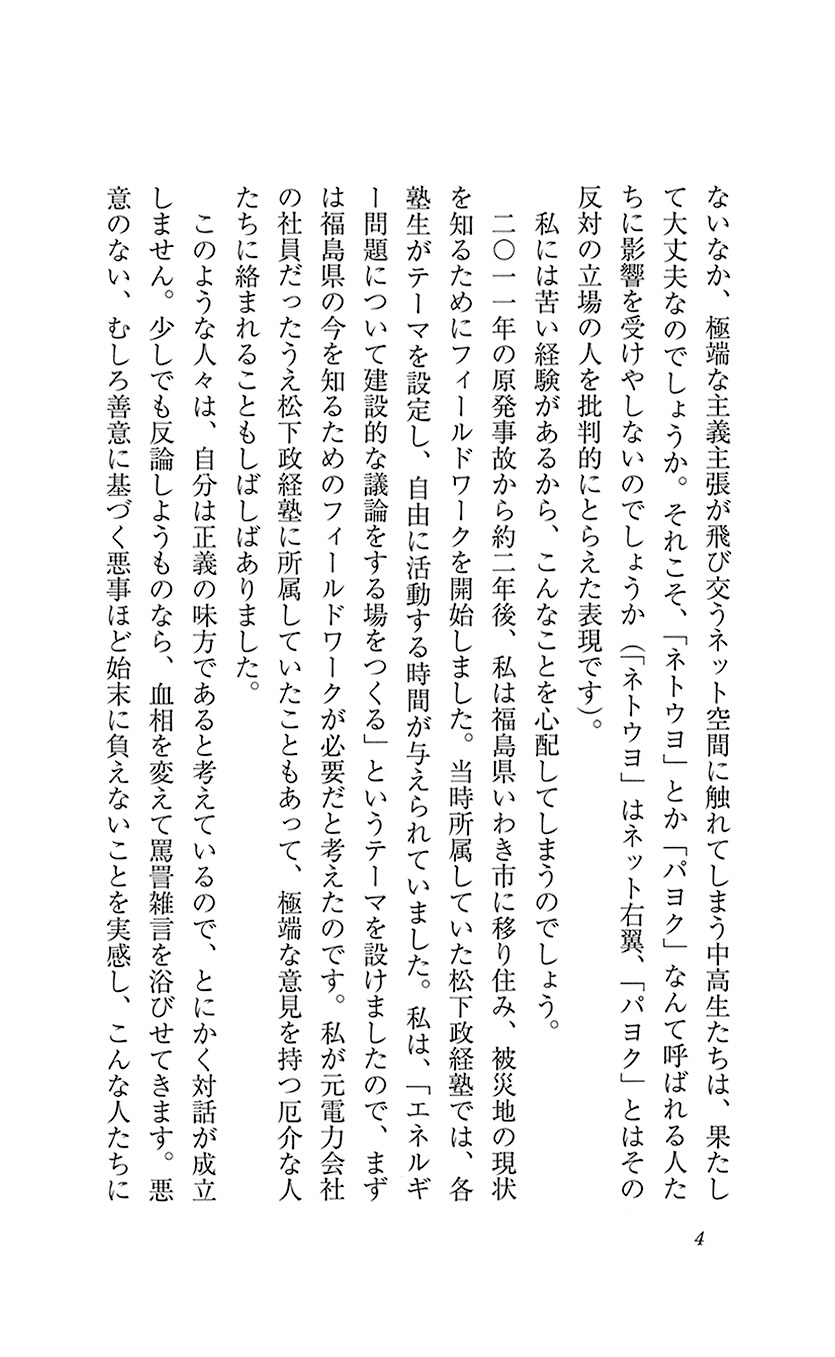 ないなか、極端な主義主張が飛び交うネット空間に触れてしまう中高生たちは、果たし
て大丈夫なのでしょうか。それこそ、「ネトウヨ」とか「パヨク」なんて呼ばれる人た
ちに影響を受けやしないのでしょうか（「ネトウヨ」はネット右翼、「パヨク」とはその
反対の立場の人を批判的にとらえた表現です）。
私には苦い経験があるから、こんなことを心配してしまうのでしょう。
二〇一一年の原発事故から約二年後、私は福島県いわき市に移り住み、被災地の現状
を知るためにフィールドワークを開始しました。当時所属していた松下政経塾では、各
塾生がテーマを設定し、自由に活動する時間が与えられていました。私は、「エネルギ
ー問題について建設的な議論をする場をつくる」というテーマを設けましたので、まず
は福島県の今を知るためのフィールドワークが必要だと考えたのです。私が元電力会社
の社員だったうえ松下政経塾に所属していたこともあって、極端な意見を持つ厄介な人
たちに絡まれることもしばしばありました。
このような人々は、自分は正義の味方であると考えているので、とにかく対話が成立
しません。少しでも反論しようものなら、血相を変えて罵詈雑言を浴びせてきます。悪
意のない、むしろ善意に基づく悪事ほど始末に負えないことを実感し、こんな人たちに
4